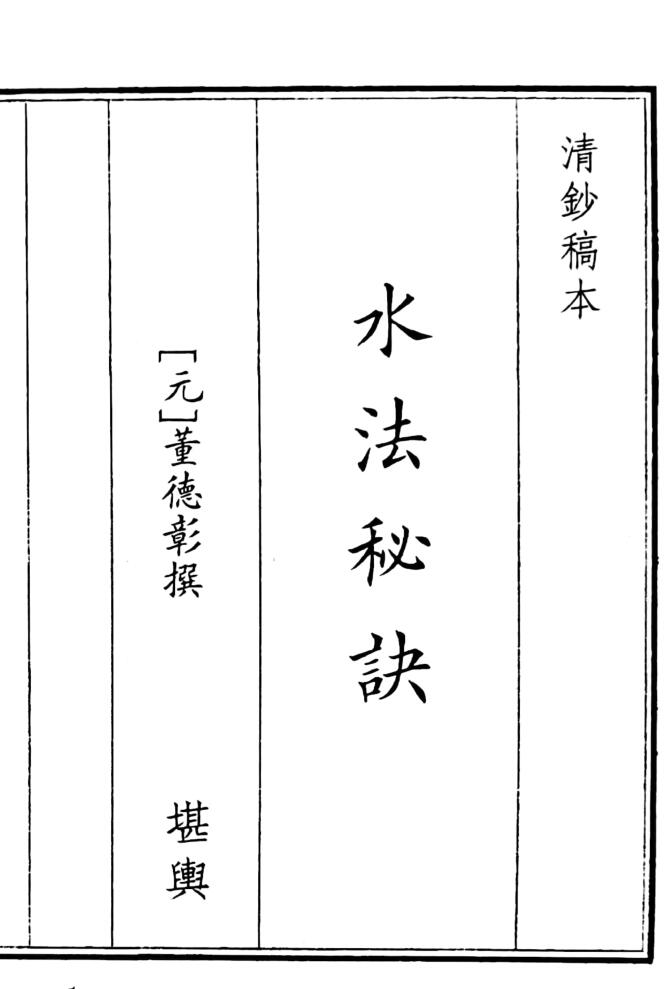 清鈔稿本
水法秘訣
[元]董德彰撰
堪輿